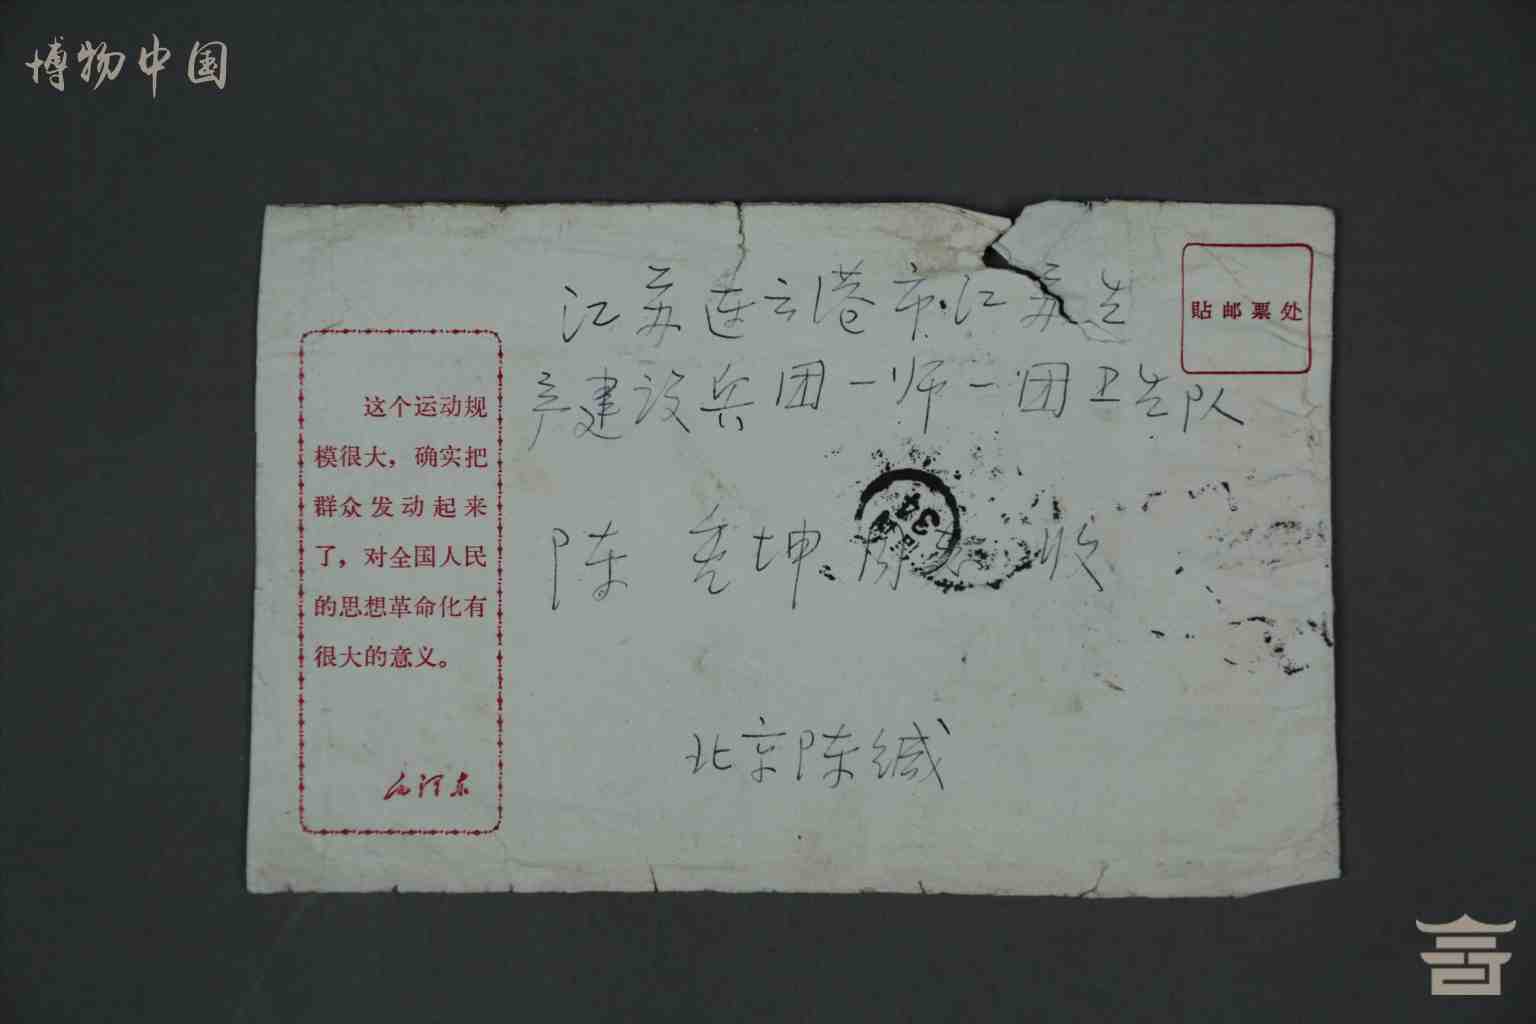 博物中国
江苏连云港市江苏生
产建设兵团一师一团卫生队
贴邮票处
这个运动规
模很大，确实把
群众发动起来
了，对全国人民
的思想革命化有
很大的意义。
毛泽东
陈秀坤 同志 收
34
北京陈缄